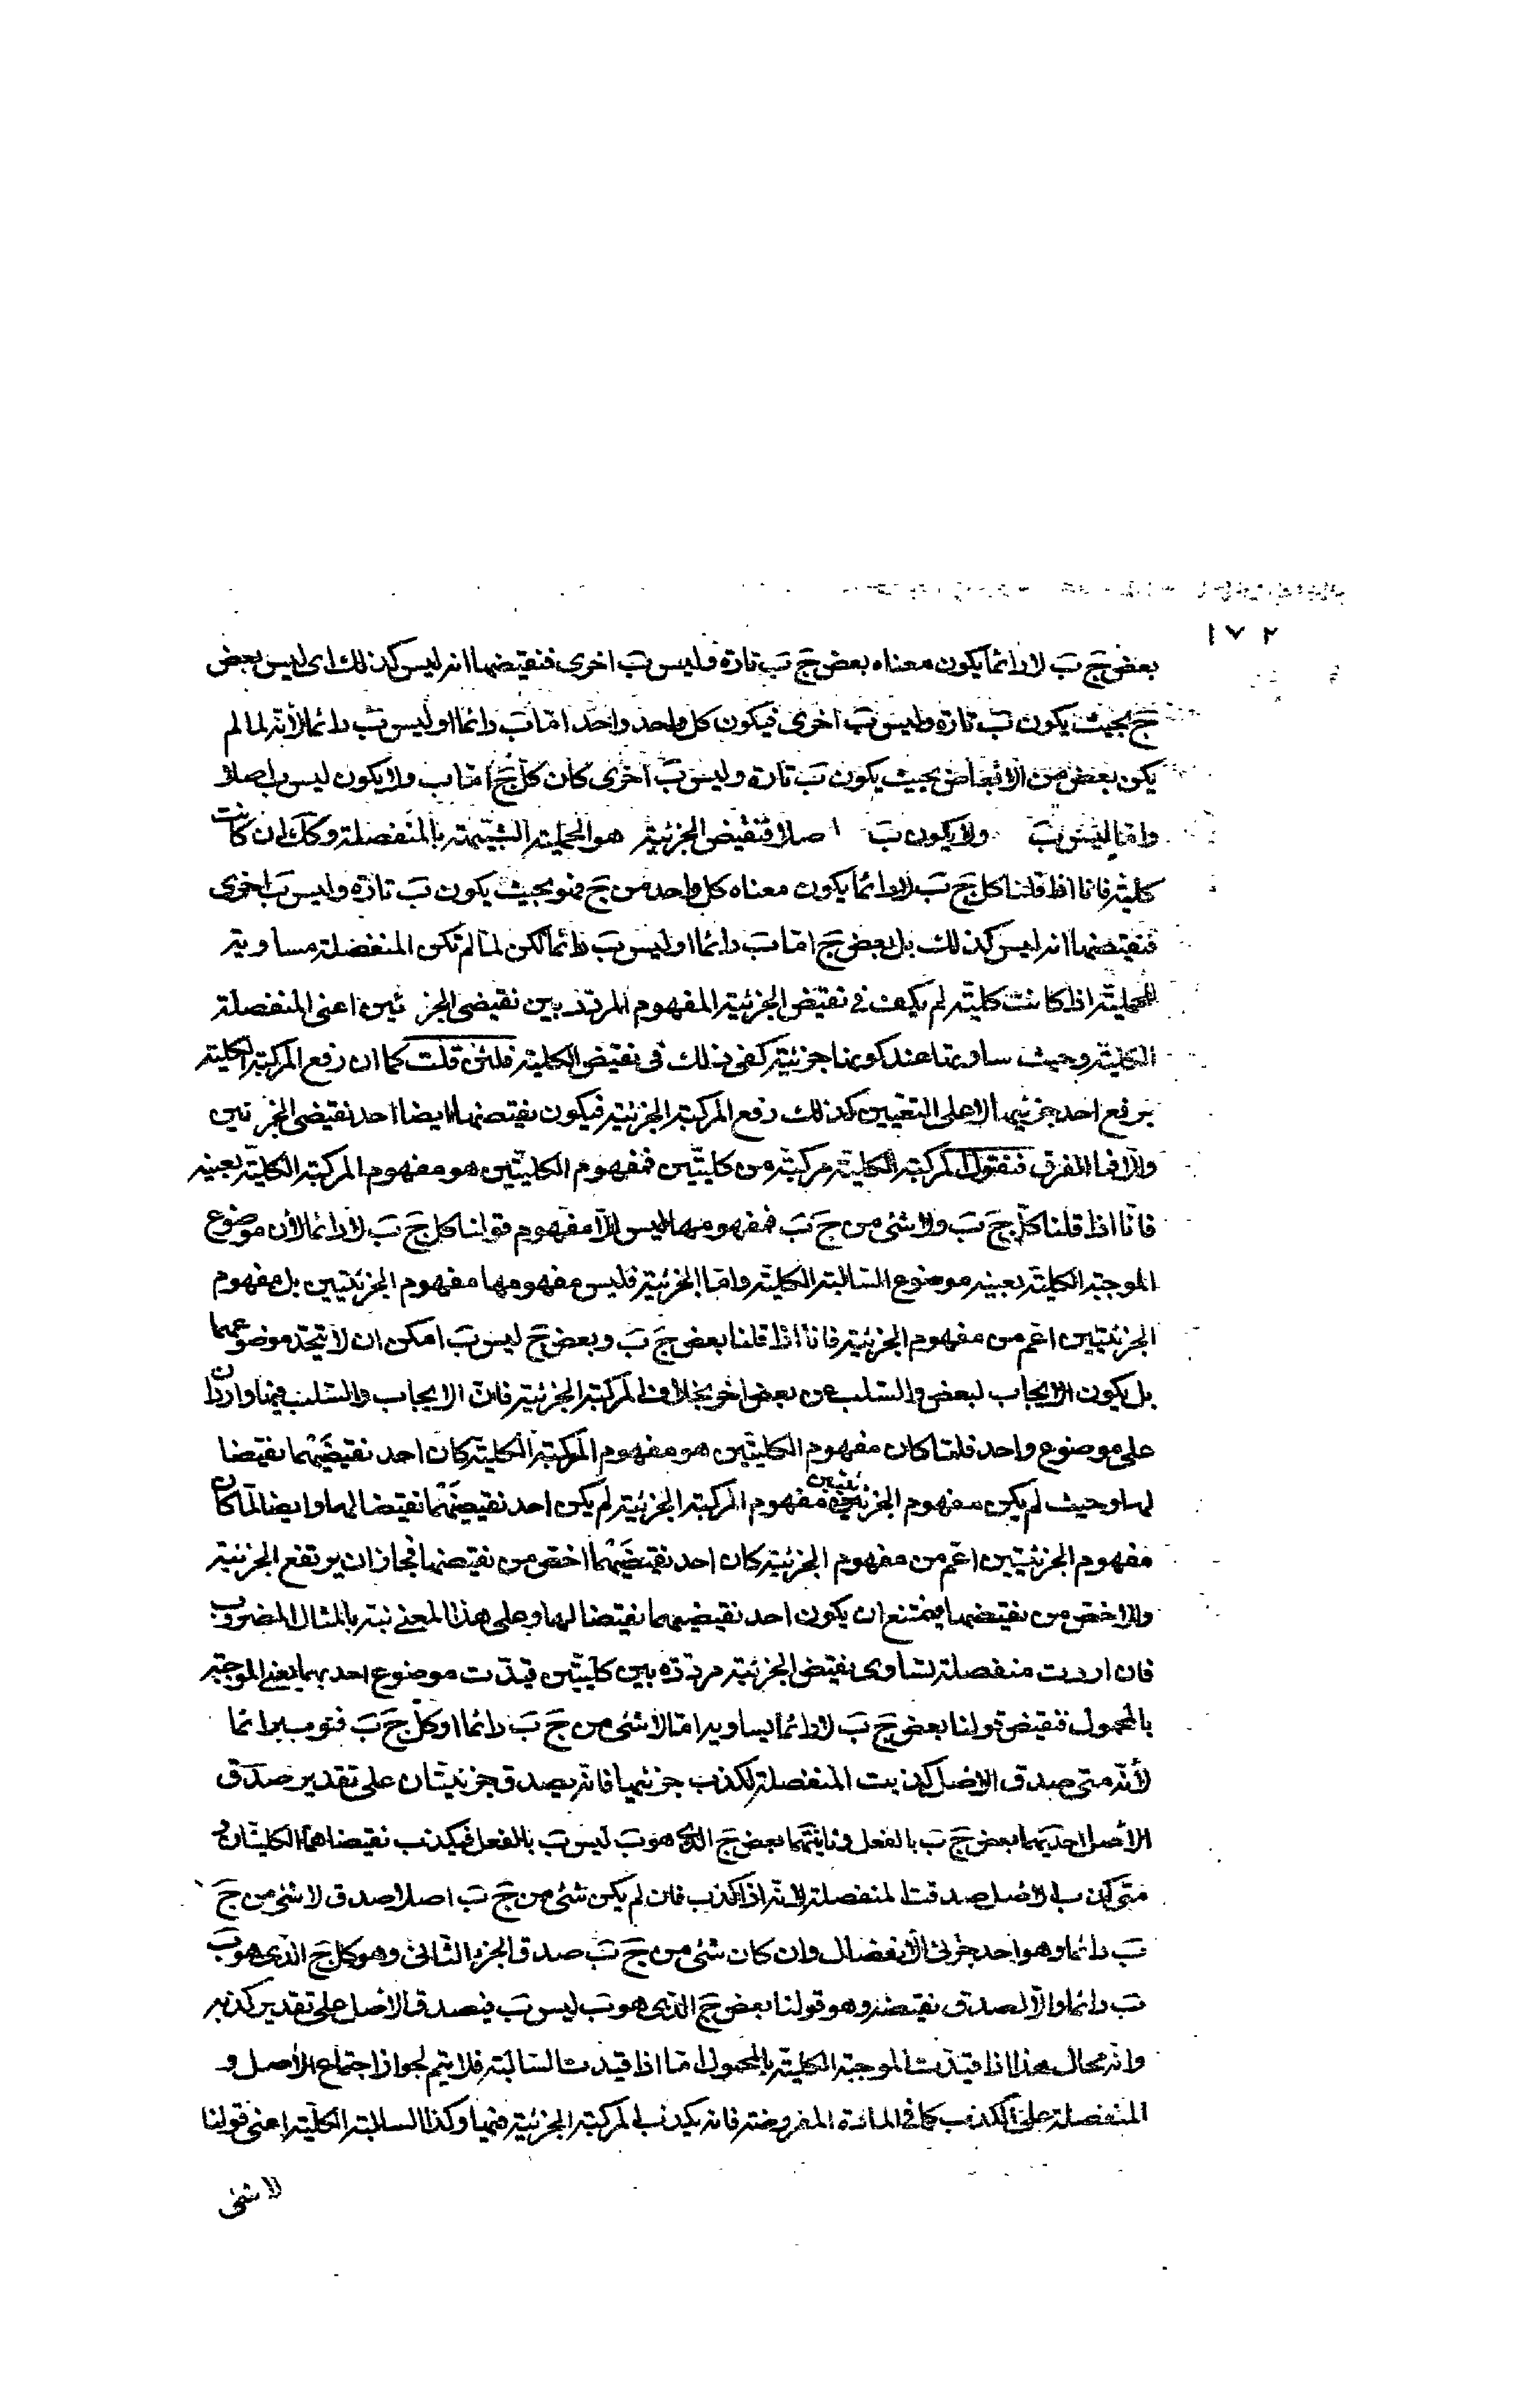 ١٧٢
بعض ج ب لا دائما يكون معناه بعض ج ب تارة وليس ب اخرى فنقيضها انه ليس كذلك اى ليس بعض
ج بحيث يكون ب تارة وليس ب اخرى فيكون كل واحد واحد امّا ب دائما او ليس ب دائما لأنّه لما لم
يكن بعض من الابعاض بحيث يكون ب تارة وليس ب اخرى كان كل ج امّا ب ولا يكون ليس ب اصلا
وامّا ليس ب ولا يكون ب اصلا فنقيض الجزئية هو الحملية الشبيهة بالمنفصلة وكك ان كانت
كلية فانا اذا قلنا كل ج ب لا دائما يكون معناه كل واحد من ج فهو بحيث يكون ب تارة وليس ب اخرى
فنقيضها انه ليس كذلك بل بعض ج امّا ب دائما او ليس ب دائما لكن لمّا لم تكن المنفصلة مساوية
للحمليّة اذا كانت كليّة لم يكف فى نقيض الجزئية المفهوم المردّد بين نقيضى الجزئين اعنى المنفصلة
الكلية وحيث ساوتها عند كونها جزئية كفى ذلك فى نقيض الكلية فلئن قلت كما ان رفع المركبة الكلية
برفع احد جزئيها لا على التعيين كذلك رفع المركبة الجزئية فيكون نقيضها ايضا احد نقيضى الجزئين
والّا فما الفرق فنقول المركبة الكلية مركبّة من كليتّين فمفهوم الكليتّين هو مفهوم المركبة الكلية بعينه
فانّا اذا قلنا كلّ ج ب ولا شئ من ج ب فمفهومها ليس الّا مفهوم قولنا كل ج ب لا دائما لأن موضوع
الموجبة الكلية بعينه موضوع السّالبة الكليّة وامّا الجزئية فليس مفهومها مفهوم الجزئيتين بل مفهوم
الجزئيتين اعم من مفهوم الجزئية فانا اذا قلنا بعض ج ب وبعض ج ليس ب امكن ان لا يتّحد موضوعهما
بل يكون الايجاب لبعض والسّلب عن بعض اخر بخلاف المركبة الجزئية فانّ الايجاب والسّلب فيها واردان
على موضوع واحد فلمّا كان مفهوم الكليتّين هو مفهوم المركبة الكلية كان احد نقيضيهما نقيضا
لها وحيث لم يكن مفهوم الجزئيتين مفهوم المركبة الجزئية لم يكن احد نقيضيهما نقيضا لها وايضا لمّا كان
مفهوم الجزئيتين اعمّ من مفهوم الجزئية كان احد نقيضيهما اخص من نقيضها فجاز ان يرتفع الجزئية
والاخص من نقيضها فيمتنع ان يكون احد نقيضيهما نقيضا لها وعلى هذا المعنى نبّه بالمثال المضروب
فان اردت منفصلة تساوى نقيض الجزئية مردّدة بين كليتّين قيدّت موضوع احديهما يعنى الموجبة
بالمحمول فنقيض قولنا بعض ج ب لا دائما يساويه امّا لا شئ من ج ب دائما او كلّ ج ب فهو ب دائما
لأنّه متى صدق الاصل كذبت المنفصلة لكذب جزئيها فانّه يصدق جزئيتّان على تقدير صدق
الأصل احديهما بعض ج ب بالفعل وثانيتهما بعض ج الذى هو ب ليس ب بالفعل فيكذب نقيضاهما الكليتّان و
متى كذب الاصل صدقت المنفصلة لانّه اذا كذب فان لم يكن شئ من ج ب اصلا صدق لا شئ من ج
ب دائما وهو احد جزئى الأنفصال وان كان شئ من ج ب صدق الجزء الثّانى وهو كل ج الذى هو ب
ب دائما والّا لصدق نقيضه وهو قولنا بعض ج الذى هو ب ليس ب فيصدق الاصل على تقدير كذبه
وانّه محال هذا اذا قيدّت الموجبة الكليّة بالمحمول امّا اذا قيدت السّالبة فلا يتم لجواز اجتماع الأصل و
المنفصلة على الكذب كما فى المادة المفروضة فانه يكذب المركبة الجزئية فيها وكذا السالبة الكليّة اعنى قولنا
لا شئ